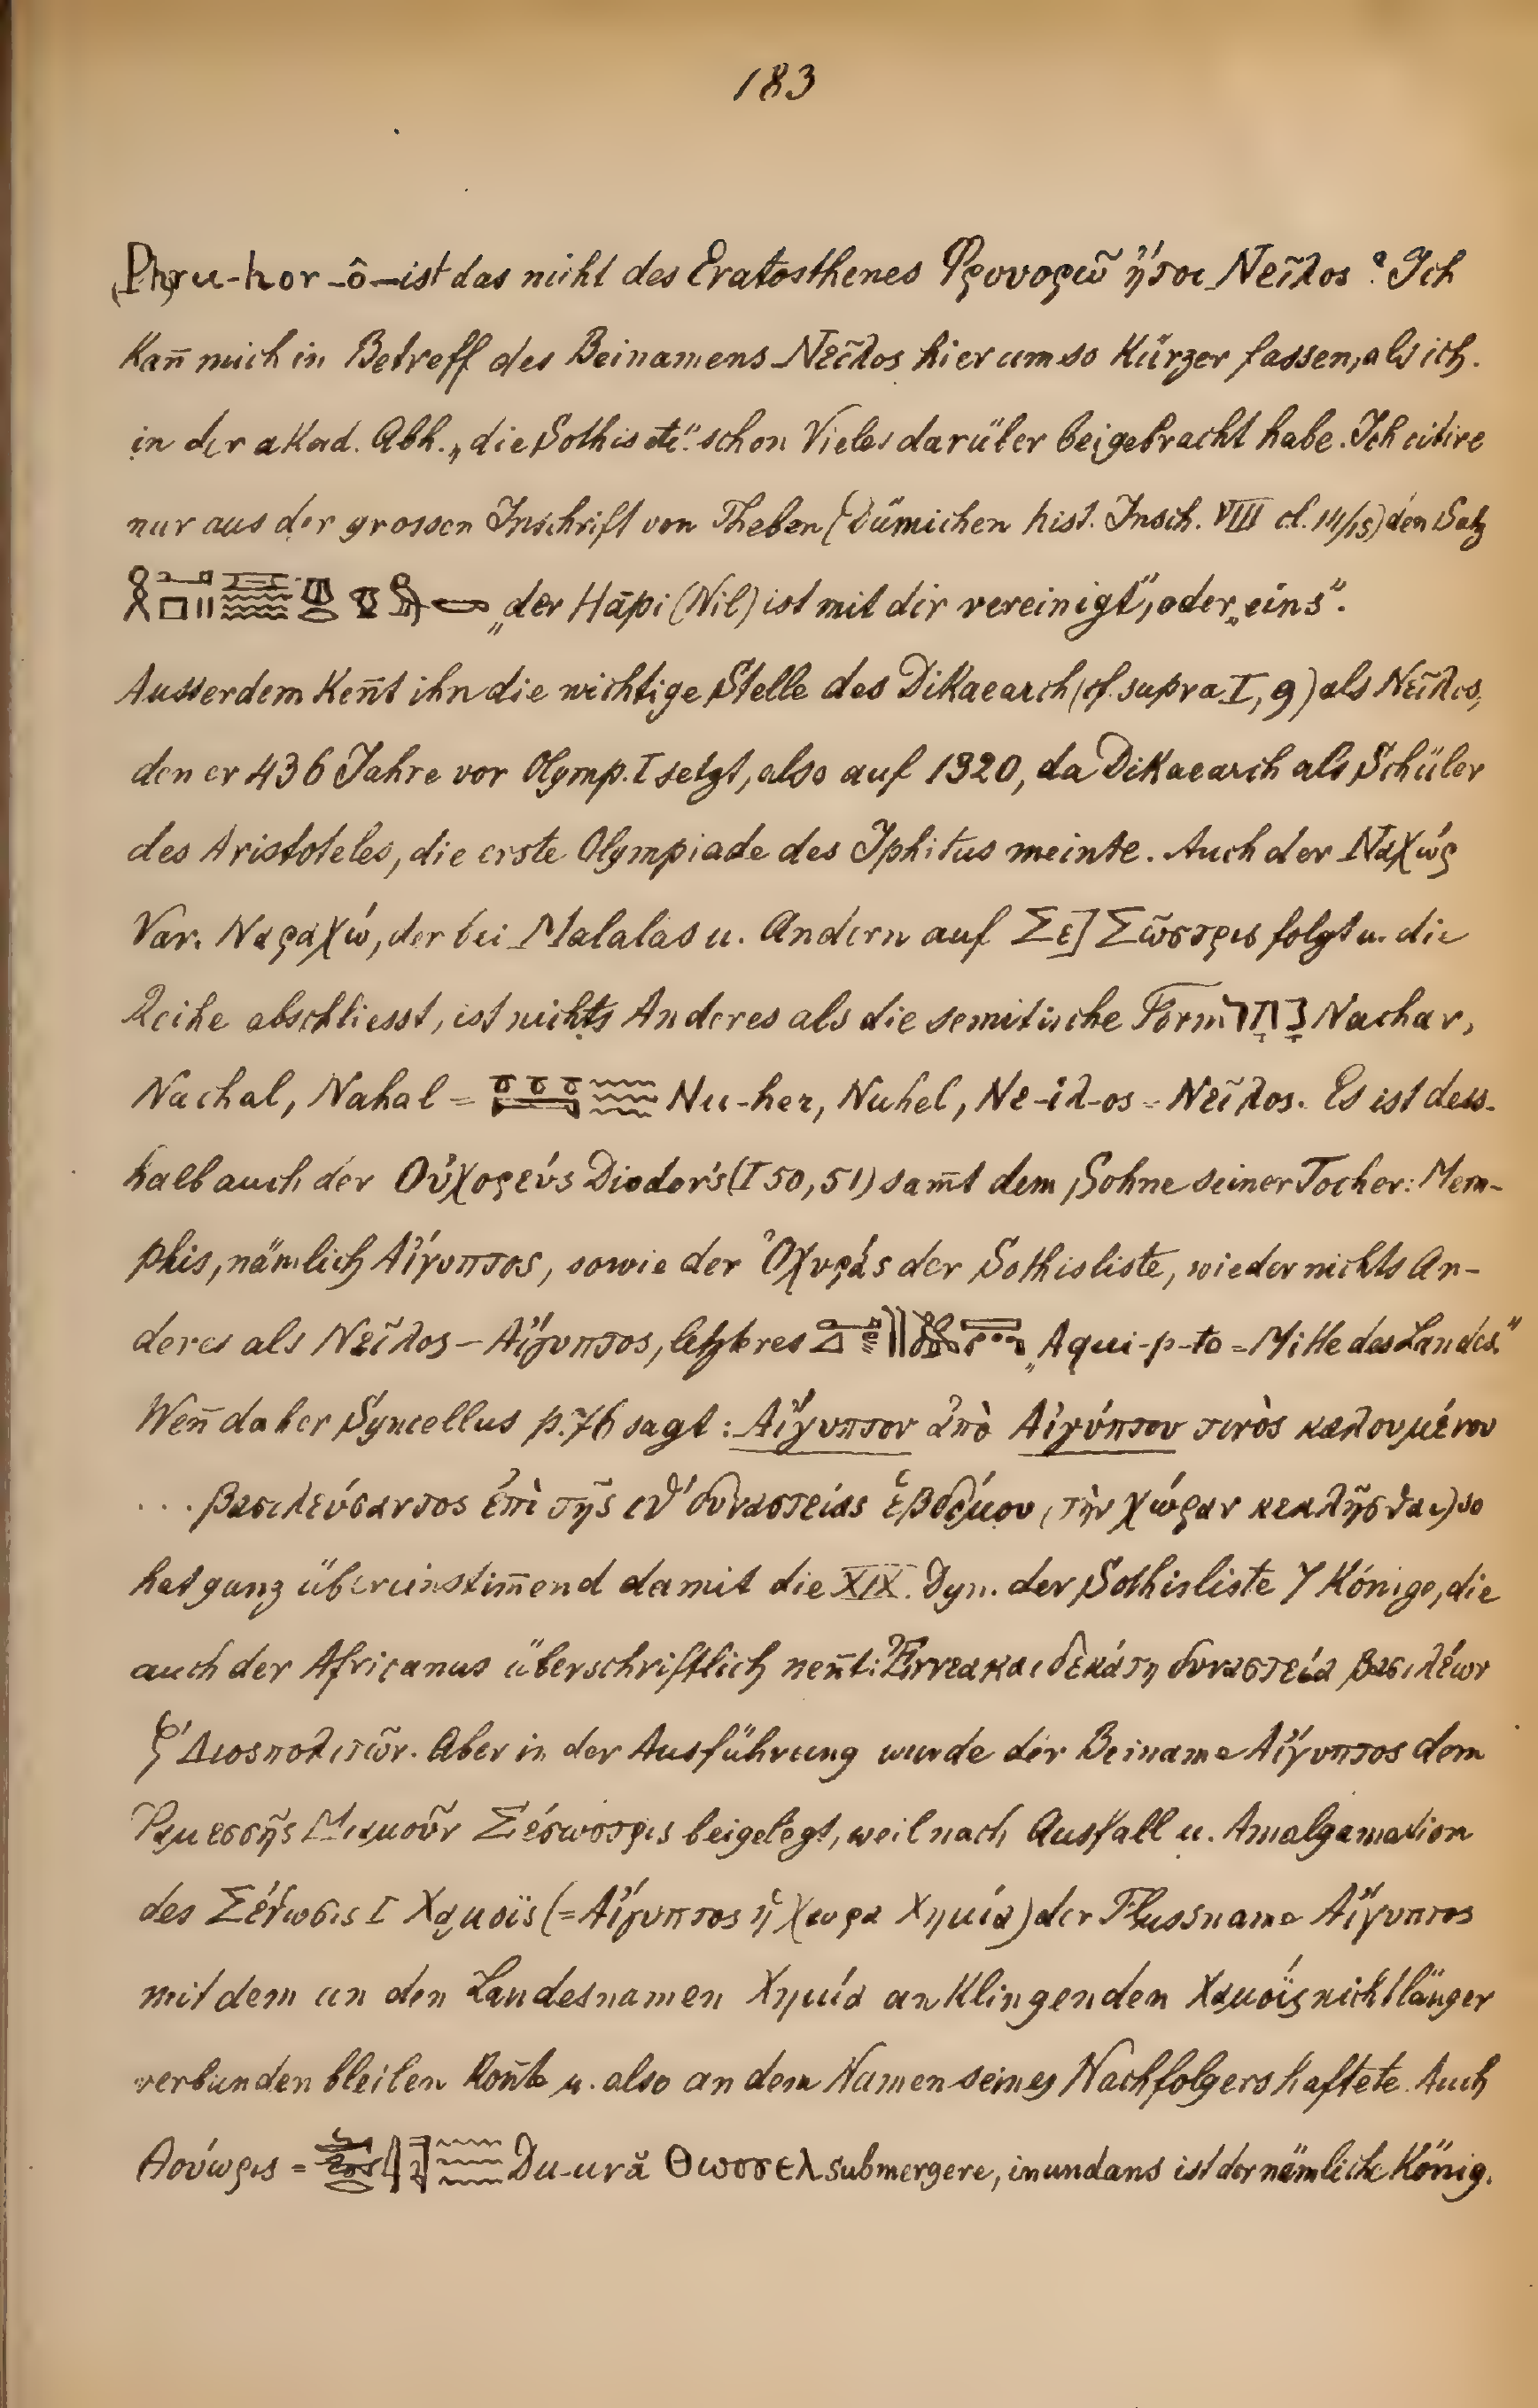 183
(Ph)ru-hor-ô–ist das nicht des Eratosthenes Φρουορῶ ἤτοι Νεῖλος? Ich
kan̄ mich in Betreff des Beinamens Νεῖλος hier um so kürzer fassen, als ich
in der akad. Abh. „die Sothis etc." schon Vieles darüber beigebracht habe. Ich citire
nur aus der grossen Inschrift von Theben (Dümichen hist. Insch. VIII cl. 14/15) den Satz
„der Hāpi (Nil) ist mit dir vereinigt", oder „eins".
Ausserdem ken̄t ihn die wichtige Stelle des Dikaearch (cf. supra I, 9) als Νεῖλος,
den er 436 Jahre vor Olymp. I setzt, also auf 1320, da Dikaearch als Schüler
des Aristoteles, die erste Olympiade des Iphitus meinte. Auch der Ναχώρ
Var. Ναραχώ, der bei Malalas u. Andern auf Σε] Σῶστρις folgt u. die
Reihe abschliesst, ist nichts Anderes als die semitische Form נחר Nachar,
Nachal, Nahal = Nu-her, Nuhel, Νε-ιλ-os = Νεῖλος. Es ist dess-
halb auch der Οὐχορεύς Diodor's (I 50, 51) sam̄t dem Sohne seiner Tocher: Mem-
phis, nämlich Αἴγυπτος, sowie der Ὀχυράς der Sothisliste, wieder nichts An-
deres als Νεῖλος – Αἴγυπτος, letzteres „Aqui-p-to = Mitte des Landes."
Wen̄ daher Syncellus p. 76 sagt: Αἴγυπτον ἀπὸ Αἰγύπτου τινὸς καλουμένου
... βασιλεύσαντος ἐπὶ τῆς ιθ' δυναστείας ἑβδόμου (τὴν χώραν κεκλῆσθαι) so
hat ganz übereinstim̄end damit die XIX. Dyn. der Sothisliste 7 Könige, die
auch der Africanus überschriftlich nen̄t: Ἐννεακαιδεκάτη δυναστεία βασιλέων
ζ' Διοσπολιτῶν. Aber in der Ausführung wurde der Beiname Αἴγυπτος dem
Ῥαμεσσῆς Μιαμοῦν Σέσωστρις beigelegt, weil nach Ausfall u. Amalgamation
des Σέθωσις I Χαμοϊς (= Αἴγυπτος ἡ χωρα Χημία) der Flussname Αἴγυπτος
mit dem an den Landesnamen Χημία anklingenden Χαμοϊς nicht länger
verbunden bleiben kon̄te u. also an dem Namen seines Nachfolgers haftete. Auch
Θούωρις = Du-ură submergere, inundans ist der nämliche König.